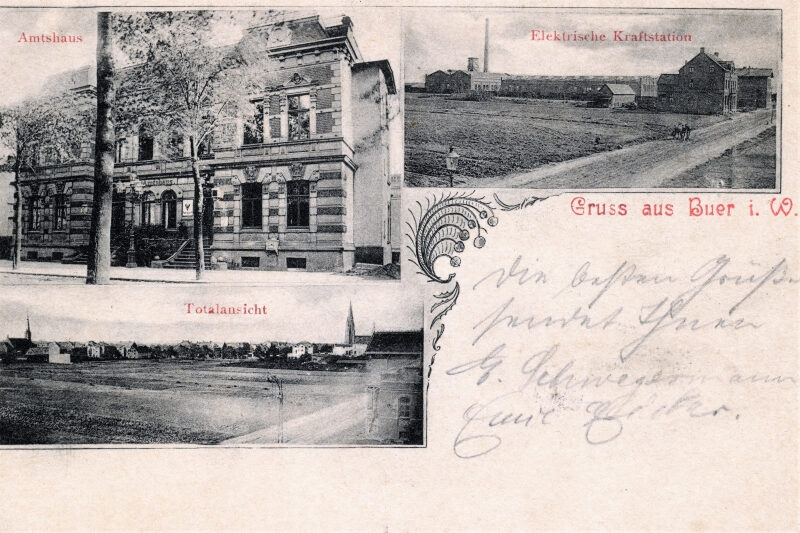 Amtshaus
Elektrische Kraftstation
Gruss aus Buer i. W.
Totalansicht
Die besten Grüße
sendet Ihnen
G. Schwegermann
Emil